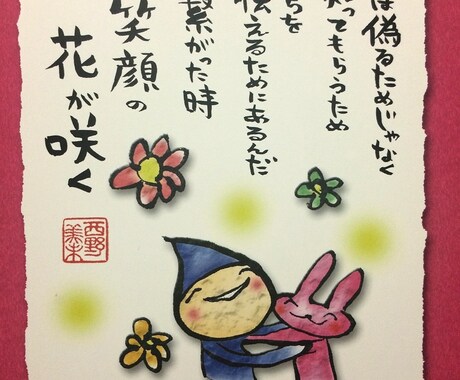 は偽るためじゃなく
知ってもらうため
ちを
伝えるためにあるんだ
繋がった時
笑顔の
花が咲く